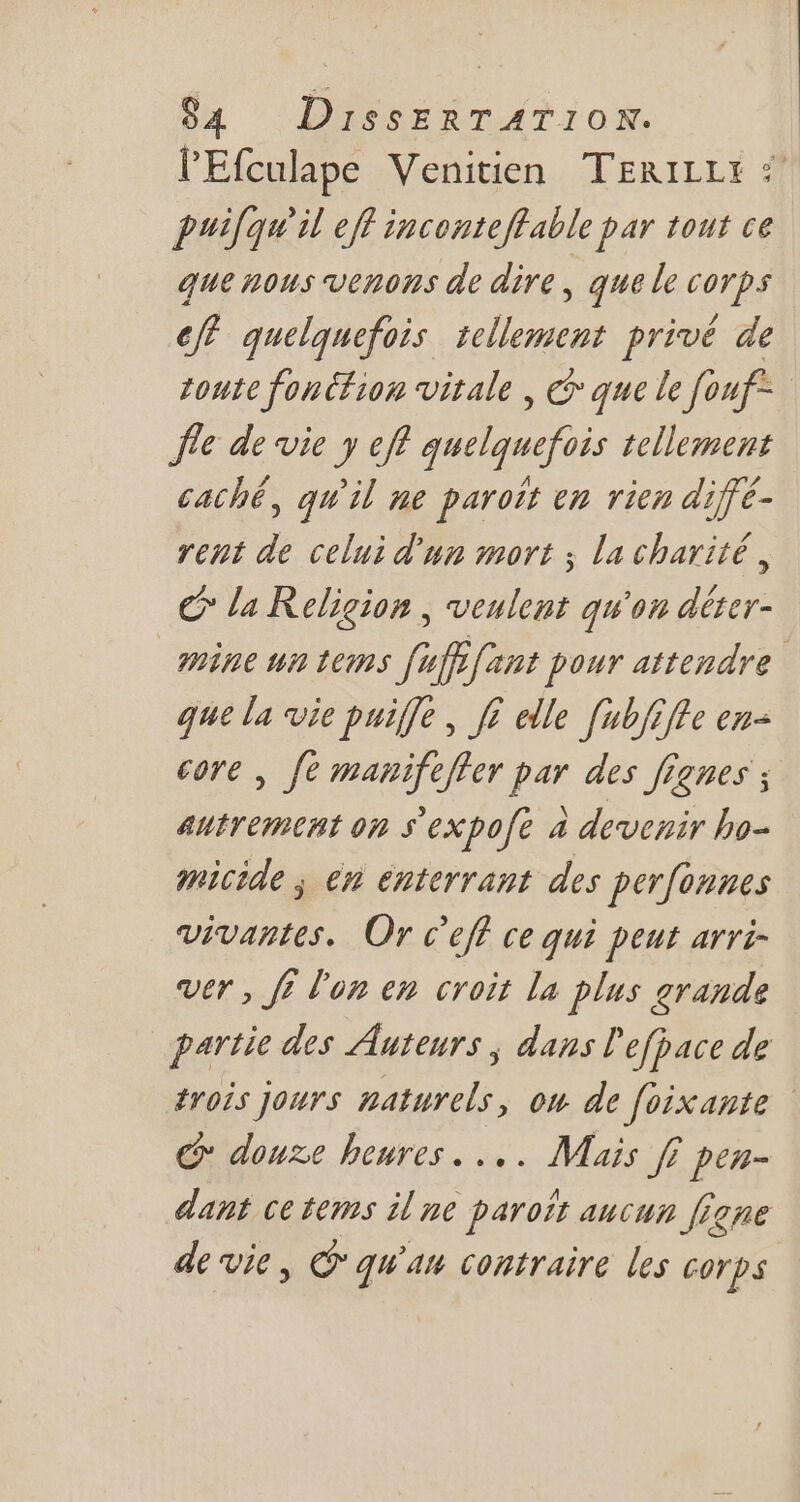 84 DISSERTATION.
l'Eſculape Venitien TERILLI :
puiſqu'il eſt inconteſtable par tout ce
que nous venons de dire, que le corps
eſt quelquefois tellement privé de
toute fonction vitale, & que le ſouf-
fle de vie y eſt quelquefois tellement
caché, qu'il ne paroît en rien diffé-
rent de celui d'un mort ; la charité,
& la Religion, veulent qu'on déter-
mine un tems ſuffiſant pour attendre
que la vie puiſſe, ſi elle ſubſiſte en-
core, ſe manifeſter par des ſignes ;
autrement on s'expoſe à devenir ho-
micide ; en enterrant des perſonnes
vivantes. Or c'eſt ce qui peut arri-
ver, ſi l'on en croit la plus grande
partie des Auteurs, dans l'eſpace de
trois jours naturels, ou de ſoixante
& douze heures.... Mais ſi pen-
dant ce tems il ne paroît aucun ſigne
de vie, & qu'au contraire les corps